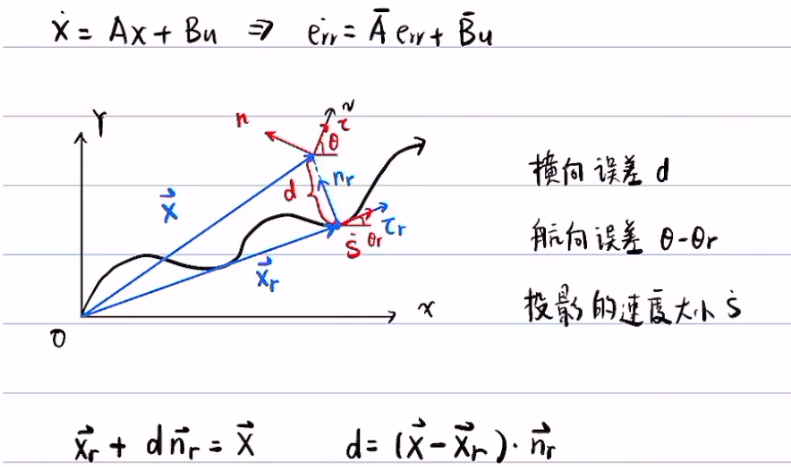 ẋ = Ax + Bu ⇒ ėrr = Ā err + B̄u
Y
n
v
τ
θ
d
nr
x⃗
τr
ṡ
θr
x⃗r
x
O
横向误差 d
航向误差 θ-θr
投影的速度大小 ṡ
x⃗r + d n⃗r = x⃗ d = (x⃗ - x⃗r) · n⃗r